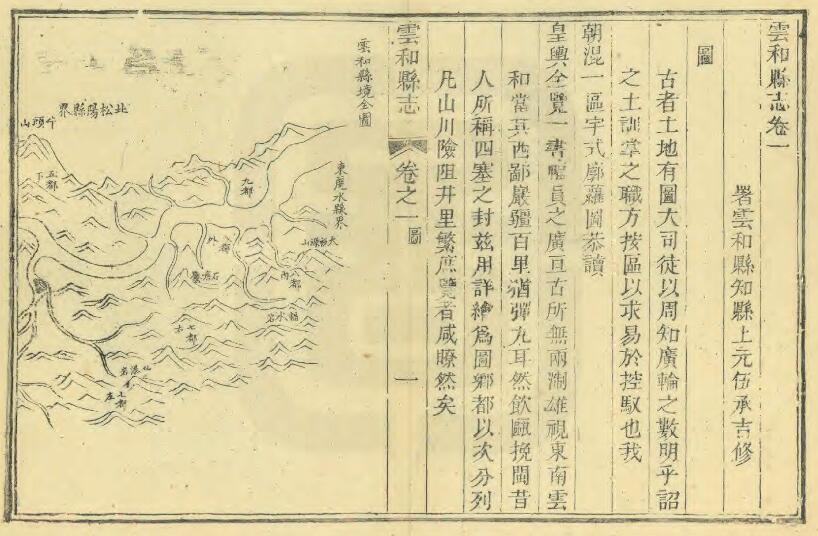 雲和縣志卷一
署雲和縣知縣上元伍承吉修
圖
古者土地有圖大司徒以周知廣輪之數明乎詔
之土訓掌之職方按區以求易於控馭也我
朝混一區宇式廓蘿圖恭讀
皇輿全覽一書幅員之廣亘古所無兩浙雄視東南雲
和當其西鄙巖疆百里猶彈丸耳然飲甌挽閩昔
人所稱四塞之封茲用詳繪爲圖鄉都以次分列
凡山川險阻井里繁庶覽者咸瞭然矣
雲和縣志
卷之一
圖
一
雲和縣境全圖
東麗水縣界
北松陽縣界
九都
五都
下
外
石塘
內
八都
七都
七都